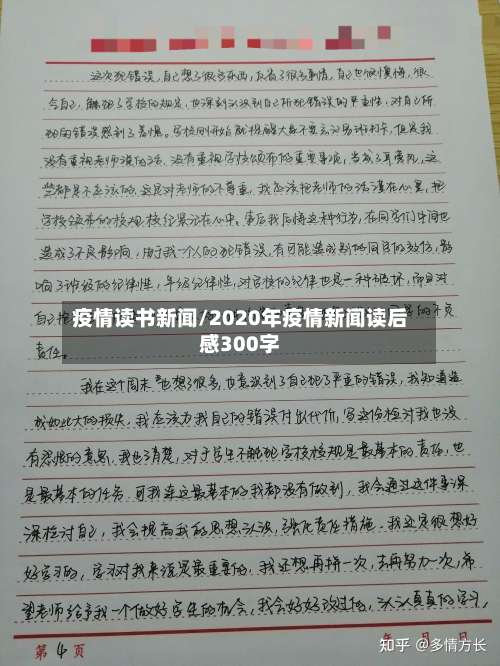 这次犯错误,自己想了很多东西,反省了很多事情,自己也很懊悔,很
气自己,触犯了学校的规定,也深刻认识到自己所犯错误的严重性,对自己所
犯的错误感到了羞愧。学校刚开始就提醒大家不要忘记易班打卡,但是我
没有重视老师讲的话,没有重视学校颁布的重要事项,当成了耳旁风,这
些都是不应该的。这是对老师的不尊重。我应该把老师的话谨在心里,把
学校颁布的校规校纪谨记在心中。事后我后悔这种行为,在同学们中间也
造成了不良影响,由于我一个人的犯错误,有可能造成别的同学的效仿,影
响了班级的纪律性,年级纪律性,对学校的纪律也是一种破坏,而且对
自己抱
疫情读书新闻/2020年疫情新闻读后
感300字
责任。
我在这个周末也想了很多,也意识到了自己犯了严重的错误,我知道造
成如此大的损失,我应该为我自己的错误付出代价,写这份检讨我也没
有怨恨的意思,我也了清楚,对于学生不触犯学校校规是最基本的责任,也
是最基本的任务。可我连这最基本的我都没有做到,我会通过这件事深
深检讨自己,我会提高我的思想认识,强化责任措施。我还是很想好
好学习的,学习对我来说是最重要的,我还想再拼一次,去再努力一次,希
望老师给予我一个做好学生的机会,我会好好改过的,认认真真的学习,
第4页
年 月 日
知乎 @多情方长